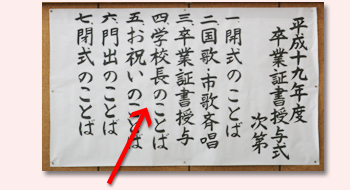 平成十九年度
卒業証書授与式
次第
一開式のことば
二国歌・市歌斉唱
三卒業証書授与
四学校長のことば
五お祝いのことば
六門出のことば
七閉式のことば